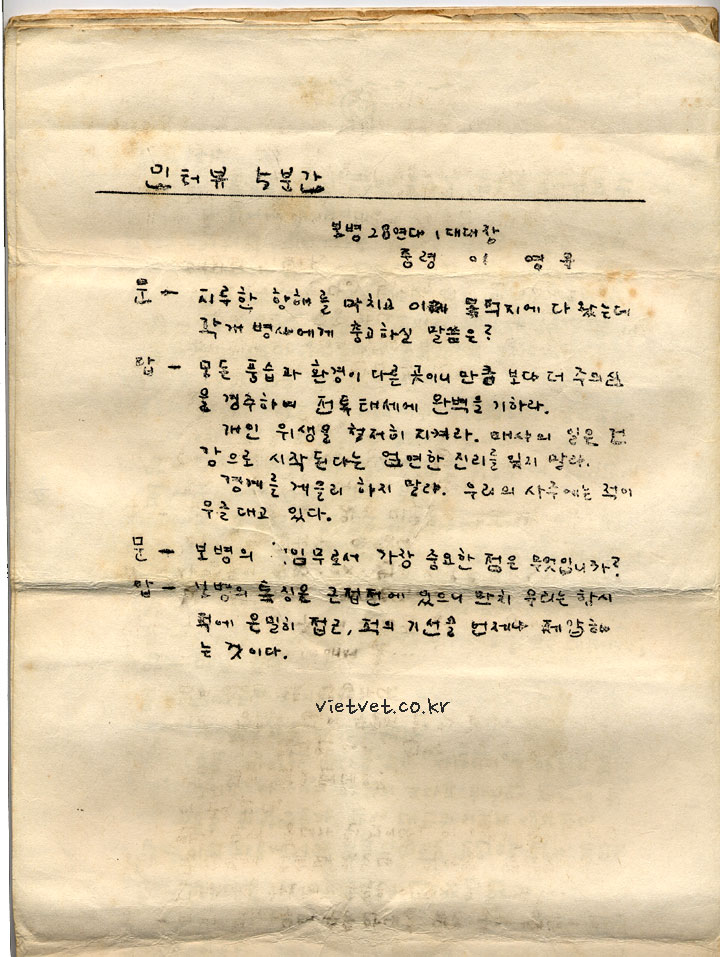 인터뷰 5분간
보병 28연대 1대대장
중령 이 영
문 - 지루한 항해를 마치고 이제 목적지에 다 왔는데
각개 병사에게 충고하실 말씀은?
답 - 모든 풍습과 환경이 다른 곳이니 만큼 보다 더 주의심
을 경주하여 전투태세에 완벽을 기하라.
개인 위생을 철저히 지켜라. 매사의 일은 건
강으로 시작된다는 엄연한 진리를 잊지 말라.
경계를 게을리 하지 말라. 우리의 사주에는 적이
우글대고 있다.
문 - 보병의 임무로서 가장 중요한 점은 무엇입니까?
답 - 보병의 특징은 근접전에 있으니 만치 우리는 항시
적에 은밀히 접근, 적의 기선을 언제나 제압해
는 것이다.
vietvet.co.kr